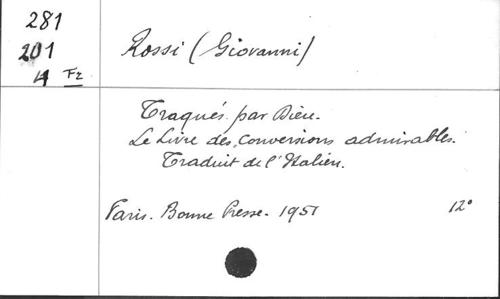 281
201
4 Fr
Rossi (Giovanni)
Traqués par Dieu.
Le Livre des conversions admirables.
Traduit de l'Italien.
Paris. Bonne Presse. 1951 12°